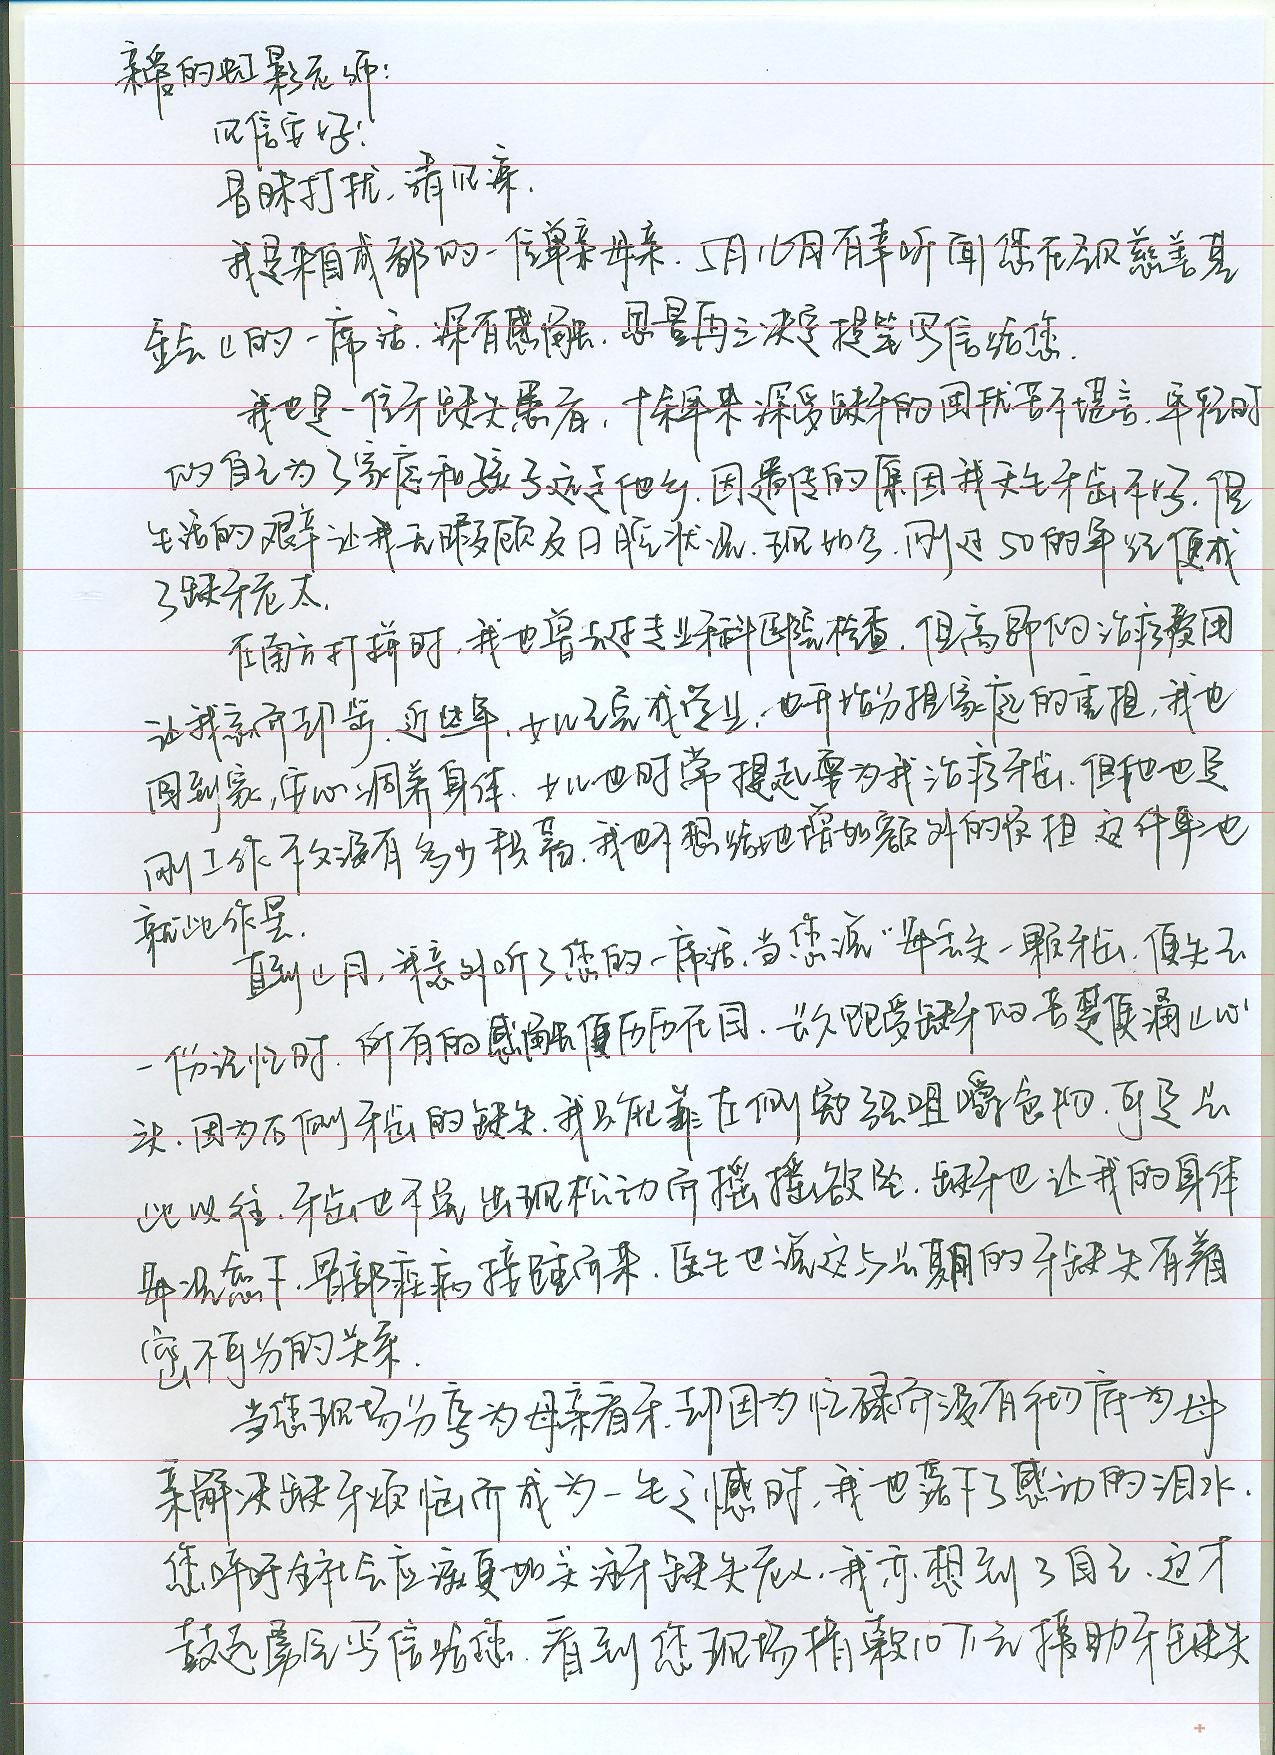 亲爱的虹影老师:
见信安好!
冒昧打扰,请见谅.
我是来自成都的一位单亲母亲.5月16日有幸听闻您在圣贝慈善基
金会上的一席话.深有感触.思量再三决定提笔写信给您.
我也是一位牙缺失患者,十余年来深受缺牙的困扰苦不堪言.年轻时
的自己为了家庭和孩子远走他乡.因遗传的原因我天生牙齿不好.但
生活的艰辛让我无暇顾及口腔状况.现如今.刚过50的年纪便成
了缺牙老太.
在南方打拼时,我也曾去过专业牙科医院检查.但高昂的治疗费用
让我望而却步.近些年,女儿已完成学业,也开始分担家庭的重担,我也
回到家,安心调养身体.女儿也时常提起要为我治疗牙齿.但她也是
刚工作不久没有多少积蓄.我也不想给她增加额外的负担 这件事也
就此作罢.
直到上月,我意外听了您的一席话,当您说"每丢失一颗牙齿,便失去
一份记忆时.所有的感触便历历在目.长久饱受缺牙的苦楚便涌上心
头.因为右侧牙齿的缺失.我只能靠左侧勉强咀嚼食物.可是长
此以往.牙齿也不免出现松动而摇摇欲坠.缺牙也让我的身体
每况愈下.胃部疾病接踵而来.医生也说这与长期的牙缺失有着
密不可分的关系.
当您现场分享为母亲看牙.却因为忙碌而没有彻底为母
亲解决缺牙烦恼而成为一生之憾时,我也落下了感动的泪水.
您呼吁全社会应该更加关注牙缺失老人.我亦想到了自己.这才
鼓起勇气写信给您.看到您现场捐款10万元援助牙缺失